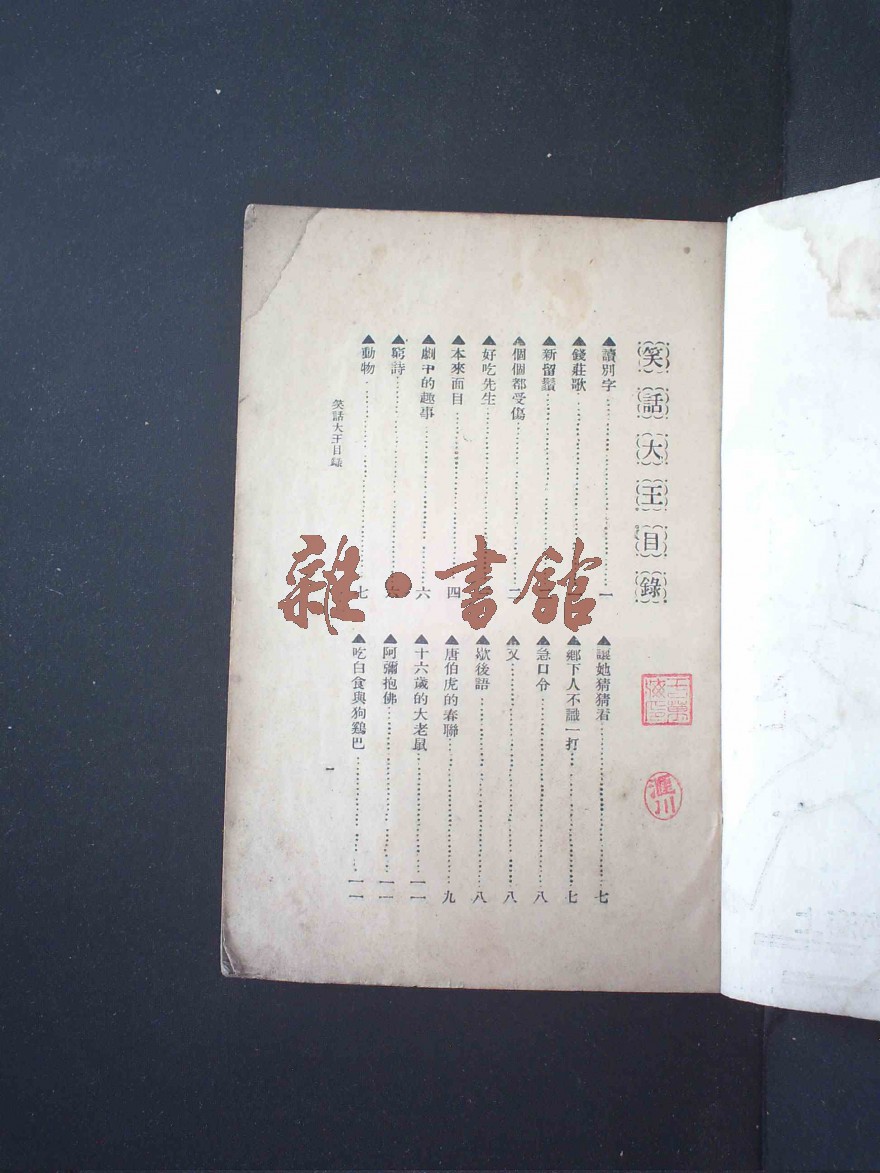 笑話大王目錄
▲讀別字…………一
▲錢莊歌…………
▲新留鬚…………
▲個個都受傷…………二
▲好吃先生…………
▲本來面目…………四
▲劇中的趣事…………六
▲窮詩…………六
▲動物…………七
▲讓她猜猜看…………七
▲鄉下人不識一打…………七
▲急口令…………八
▲又…………八
▲歇後語…………八
▲唐伯虎的春聯…………九
▲十六歲的大老鼠…………一一
▲阿彌抱佛…………一一
▲吃白食與狗鷄巴…………一一
笑話大王目錄
一
滙川
雜·書館